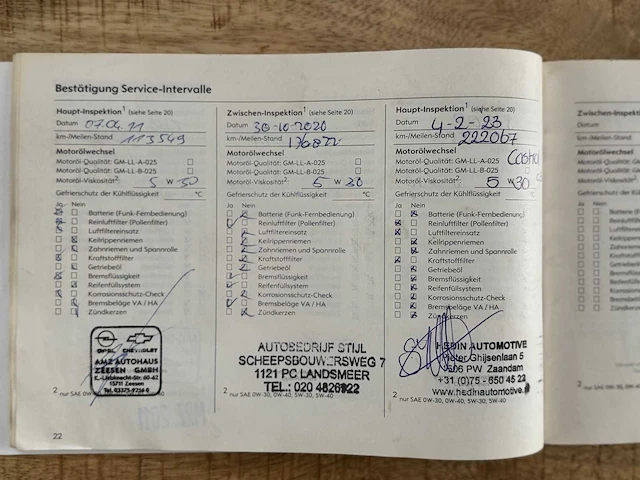 Bestätigung Service-Intervalle
Haupt-Inspektion¹ (siehe Seite 20)
Datum 07.04.11
km-/Meilen-Stand 113549
Motorölwechsel
Motoröl-Qualität: GM-LL-A-025
Motoröl-Qualität: GM-LL-B-025
Motoröl-Viskosität²: 5 W 30
Gefrierschutz der Kühlflüssigkeit °C
Ja Nein
Batterie (Funk-Fernbedienung)
Reinluftfilter (Pollenfilter)
Luftfiltereinsatz
Keilrippenriemen
Zahnriemen und Spannrolle
Kraftstofffilter
Getriebeöl
Bremsflüssigkeit
Reifenfüllsystem
Korrosionsschutz-Check
Bremsbeläge VA / HA
Zündkerzen
OPEL CHEVROLET
AMZ AUTOHAUS
ZEESEN GMBH
K.-Liebknecht-Str. 60-62
15711 Zeesen
Tel. 03375-9256-0
² nur SAE 0W-30, 0W-40, 5W-30, 5W-40
22
Zwischen-Inspektion¹ (siehe Seite 20)
Datum 30-10-2020
km-/Meilen-Stand
Motorölwechsel
Motoröl-Qualität: GM-LL-A-025
Motoröl-Qualität: GM-LL-B-025
Motoröl-Viskosität²: 5 W 30
Gefrierschutz der Kühlflüssigkeit °C
Ja Nein
Batterie (Funk-Fernbedienung)
Reinluftfilter (Pollenfilter)
Luftfiltereinsatz
Keilrippenriemen
Zahnriemen und Spannrolle
Kraftstofffilter
Getriebeöl
Bremsflüssigkeit
Reifenfüllsystem
Korrosionsschutz-Check
Bremsbeläge VA / HA
Zündkerzen
AUTOBEDRIJF STIJL
SCHEEPSBOUWERSWEG 7
1121 PC LANDSMEER
TEL.: 020 4826922
² nur SAE 0W-30, 0W-40, 5W-30, 5W-40
Haupt-Inspektion¹ (siehe Seite 20)
Datum 4-2-23
km-/Meilen-Stand 222067
Motorölwechsel
Motoröl-Qualität: GM-LL-A-025 Castrol
Motoröl-Qualität: GM-LL-B-025
Motoröl-Viskosität²: 5 W 30
Gefrierschutz der Kühlflüssigkeit °C
Ja Nein
Batterie (Funk-Fernbedienung)
Reinluftfilter (Pollenfilter)
Luftfiltereinsatz
Keilrippenriemen
Zahnriemen und Spannrolle
Kraftstofffilter
Getriebeöl
Bremsflüssigkeit
Reifenfüllsystem
Korrosionsschutz-Check
Bremsbeläge VA / HA
Zündkerzen
HEDIN AUTOMOTIVE
Pieter Ghijsenlaan 5
1506 PW Zaandam
+31 (0)75 - 650 45 22
www.hedinautomotive.
² nur SAE 0W-30, 0W-40, 5W-30, 5W-40
Zwischen-Inspektion
Datum
km-/Meilen-Stand
Motorölwechsel
Motoröl-Qualität: GM-
Motoröl-Qualität: GM-
Motoröl-Viskosität²:
Gefrierschutz der Kühl
Ja Nein
Batterie (Fun
Reinluftfilter
Luftfiltereins
Keilrippenri
Zahnriemen
Kraftstofffilt
Getriebeöl
Bremsflüssig
Reifenfüllsys
Korrosionssc
Bremsbeläg
Zündkerzen
² nur SAE 0W-30, 0W-40